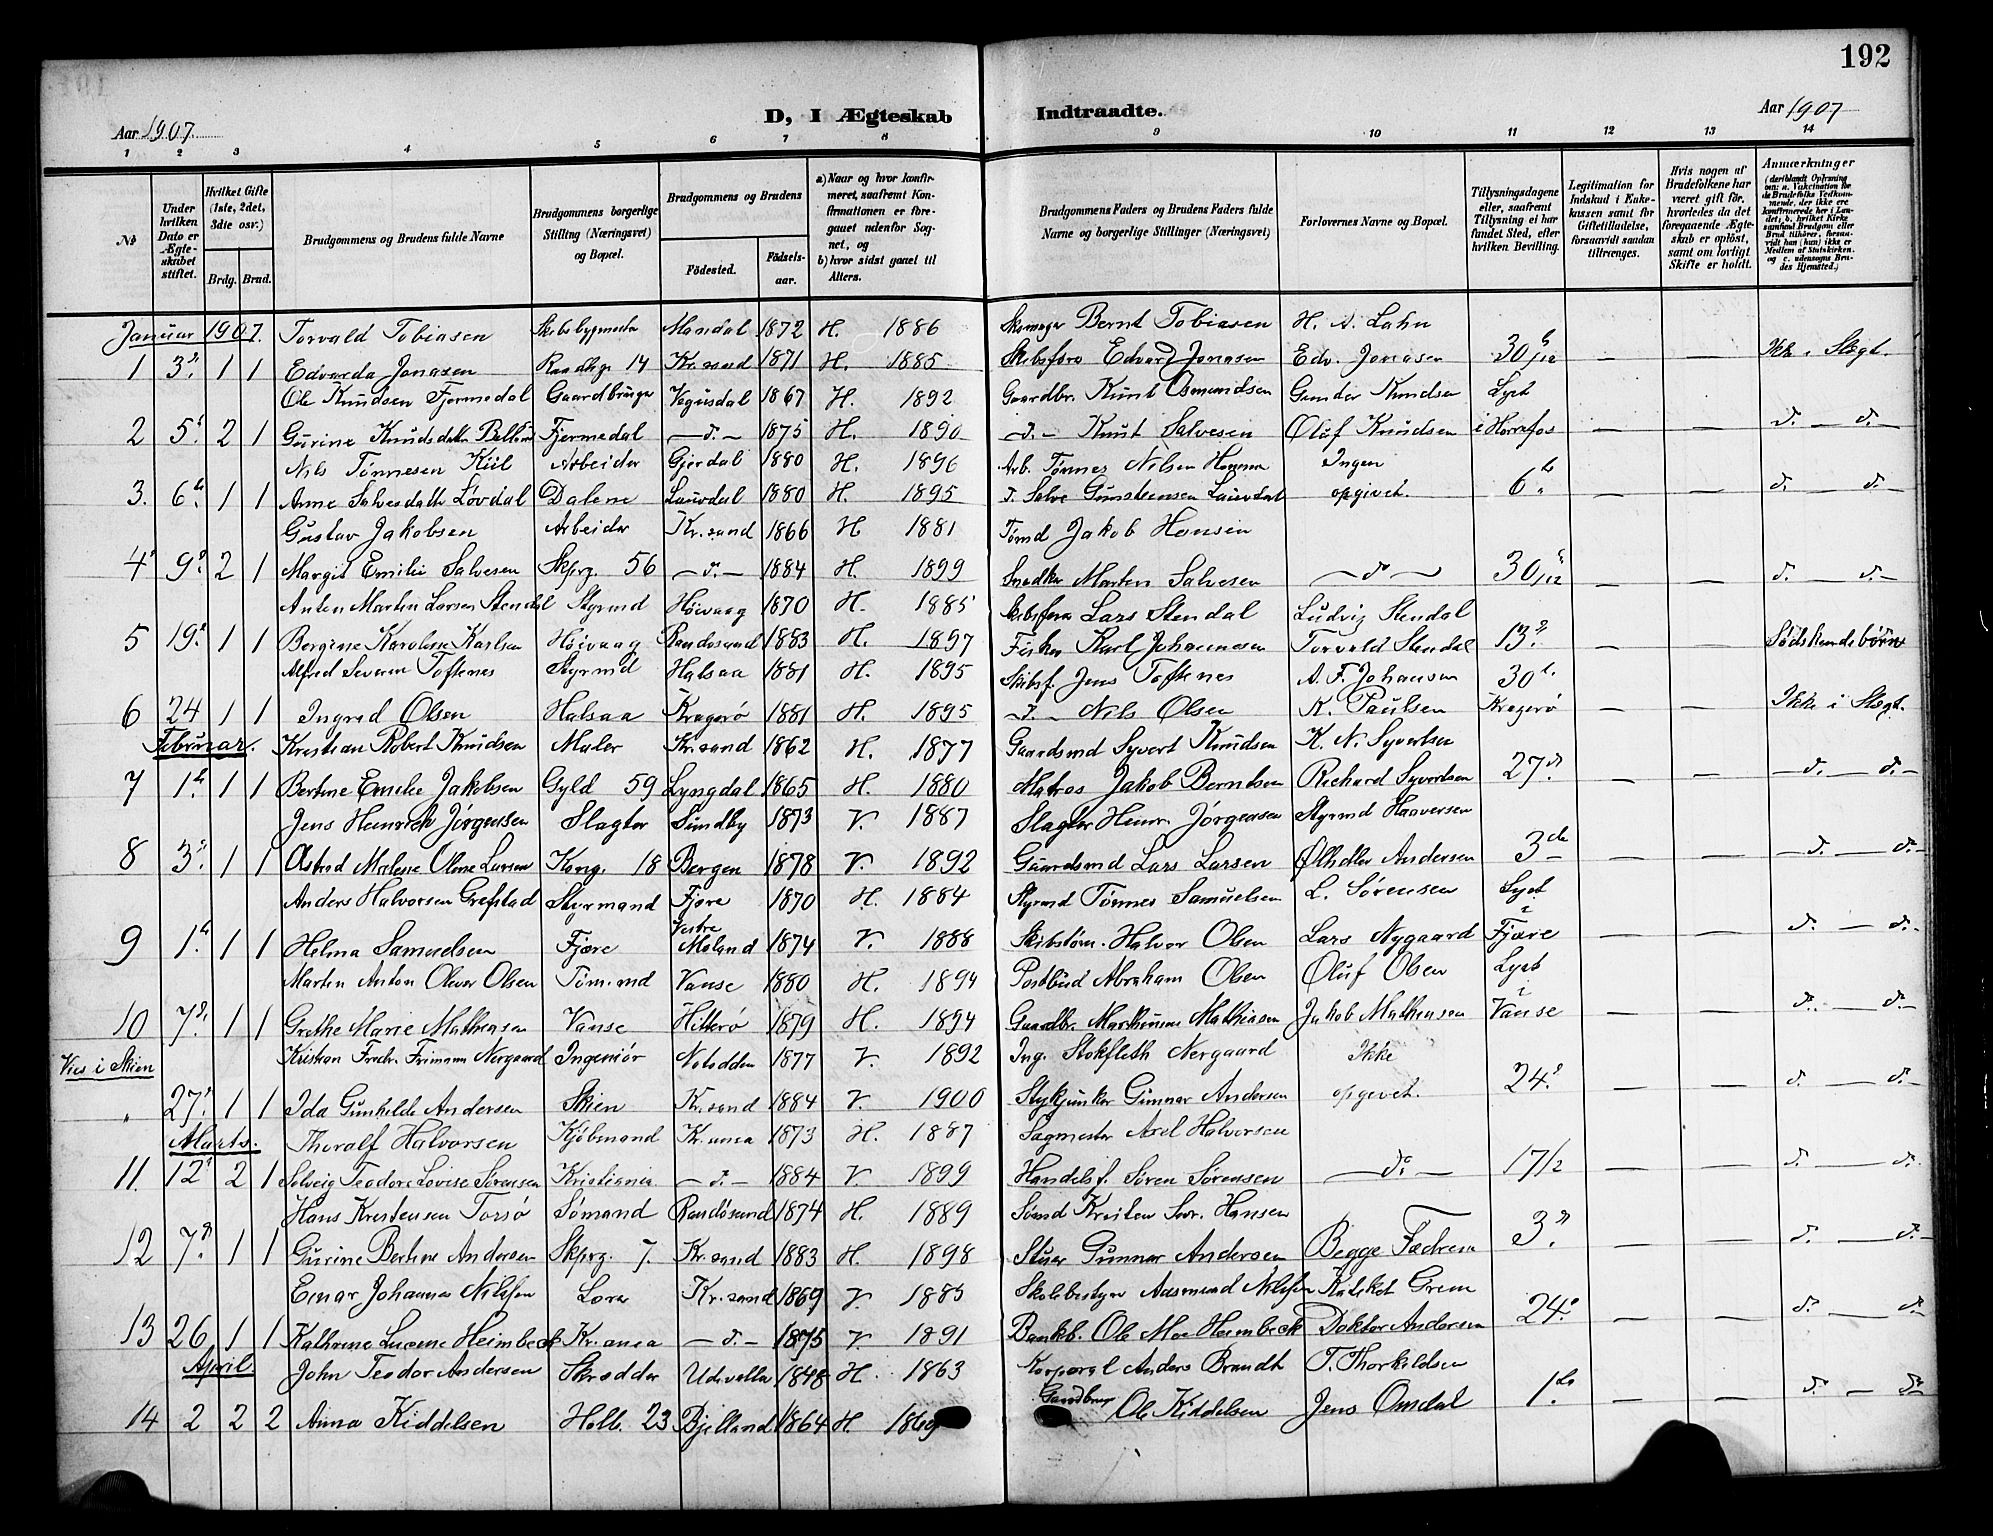 192
Aar 1907.
D, I Ægteskab Indtraadte.
Aar 1907
1 2 3 4 5 6 7 8 9 10 11 12 13 14
№
Under hvilken Dato er Ægteskabet stiftet.
Hvilket Gifte (1ste, 2det, 3die osv.)
Brdg. Brud.
Brudgommens og Brudens fulde Navne
Brudgommens borgerlige Stilling (Næringsvei) og Bopæl.
Brudgommens og Brudens
Födested.
Födselsaar.
a) Naar og hvor konfirmeret, saafremt Konfirmationen er foregaaet udenfor Sognet, og
b) hvor sidst gaaet til Alters.
Brudgommens Faders og Brudens Faders fulde Navne og borgerlige Stillinger (Næringsvei)
Forlovernes Navne og Bopæl.
Tillysningsdagene eller, saafremt Tillysning ei har fundet Sted, efter hvilken Bevilling.
Legitimation for Indskud i Enkekassen samt for Giftetilladelse, forsaavidt saadan tiltrænges.
Hvis nogen af Brudefolkene har været gift för, hvorledes da det foregaaende Ægteskab er oplöst, samt om lovligt Skifte er holdt.
Anmærkninger
Januar 1907. Torvald Tobiasen Skibsbygmester Mandal 1872 H. 1886 Skomager Bernt Tobiasen H. A. Lahn
1 3. 1 1 Edvarda Jonasen Raadhgt 14 Kr.sand 1871 H. 1885 Skibsføre Edvard Jonasen Edv. Jonasen 30/12 — — Ikke i Slegt.
Ole Knudsen Fjermedal Gaardbruger Vegusdal 1867 H. 1892 Gaardbr. Knut Osmundsen Gunder Knudsen Lyst
2 5. 2 1 Gurine Knudsdatter Fjermedal —d.— 1875 H. 1890 —d.— Knut Salvesen Oluf Knudsen i — — d. — d.—
Nils Tønnesen Kiil Arbeider Gjerdal 1880 H. 1896 Arb. Tønnes Nilsen Ingen
3. 6. 1 1 Anne Salvesdatter Løvdal Dalene Laudal 1880 H. 1895 d. Salve Gunsteinsen opgivet. 6. — — d. d.—
Gustav Jakobsen Arbeider Kr.sand 1866 H 1881 Tømd Jakob Hansen
4 9. 2 1 Margit Emilie Salvesen Skprg. 56 —d.— 1884 H. 1899 Snedker Martin Salvesen —d— 30/12 — — d. d.—
Anten Martin Larsen Stendal Styrmd Høivaag 1870 H. 1885 Skibsfører Lars Stendal Ludvig Stendal
5 19. 1 1 Bergine Karoline Karlsen Høivaag Randesund 1883 H. 1897 Fisker Karl Johannesen Torvald Stendal 13. — — Sødskendebørn
Alfred Severin Toftenes Styrmd Halsaa 1881 H. 1895 Skibsf. Jens Toftenes A. F. Johansen 30.
6 24 1 1 Ingrid Olsen Halsaa Kragerø 1881 H. 1895 d. — Nils Olsen K. Paulsen Kragerø — — Ikke i Slegt.
Februar. Kristian Robert Knudsen Maler Kr.sand 1862 H. 1877 Gaardsmd Syvert Knudsen K. N. Syvertsen
7 1. 1 1 Bertine Emelie Jakobsen Gyld 59 Lyngdal 1865 H. 1880 Matros Jakob Berntsen Richard Syvertsen 27. — — —d. — d.—
Jens Heinrich Jørgensen Slagter Sundby 1873 V. 1887 Slagter Heinr. Jørgensen Styrmd Haaversen
8 3. 1 1 Astrid Malene Oline Larsen Kong. 18 Bergen 1878 V. 1892 Gaardsmd Lars Larsen Ølhdler Andersen 3de — — —d. — d.—
Anders Halvorsen Grefstad Styrmand Fjære 1870 H. 1884 Styrmd Tønnes Samuelsen L. Sørensen Lyst
9 1. 1 1 Helma Samuelsen Fjære Vestre Moland 1874 V. 1888 Skibstøm. Halvor Olsen Lars Nygaard i Fjære — — d. — d.—
Martin Anton Oliver Olsen Tøm.md Vanse 1880 H. 1894 Postbud Abraham Olsen Oluf Olsen Lyst
10 7. 1 1 Grethe Marie Mathiasen Vanse Hitterø 1879 H. 1894 Gaardbr. Mathiasen Jakob Mathiasen i Vanse — — d. — d.—
Vies i Skien Kristian Fredr. Frimann Nergaard Ingeniør Notodden 1877 V. 1892 Ing. Stokfleth Nergaard Ikke
" 27. 1 1 Ida Gunhilde Andersen Skien Kr.sand 1884 V. 1900 Stykjunker Gunnar Andersen opgivet. 24. — — d. — d.—
Marts. Thoralf Halvorsen Kjøbmand Kr.ania 1873 H. 1887 Sagmester Axel Halvorsen
11. 12 2 1 Solveig Teodora Lovise Sørensen Kristiania —d.— 1884 V. 1899 Handelsf. Søren Sørensen —d.— 17/2 — — d. — d.—
Hans Kristensen Torsø Sømand Randøsund 1874 H. 1889 Sømd Kristen Hansen
12 7. 1 1 Gurine Bertine Andersen Skprg. 7. Kr.sand 1883 H. 1898 Stuer Gunnar Andersen Begge Fædrene 3. — — d. — d.—
Einar Johannes Nilssen Kr.sand 1869 V. 1885 Skolebestyrer Aasmund Nilssen Grem
13 26 1 1 Kathrine Lucine Heimbeck Kr.ania —d.— 1875 V. 1891 Bankb. Ole Moe Heimbeck Doktor Andersen 24. — — d. — d.—
April John Teodor Andersen Skrædder Udevalla 1848 H. 1863 Korporal Anders Brandt T. Thorkildsen
14 2 2 2 Anna Kiddelsen Holb. 23 Bjelland 1864 H. Gaardbrug Ole Kiddelsen Jens Omdal 1. — — d. — d.—